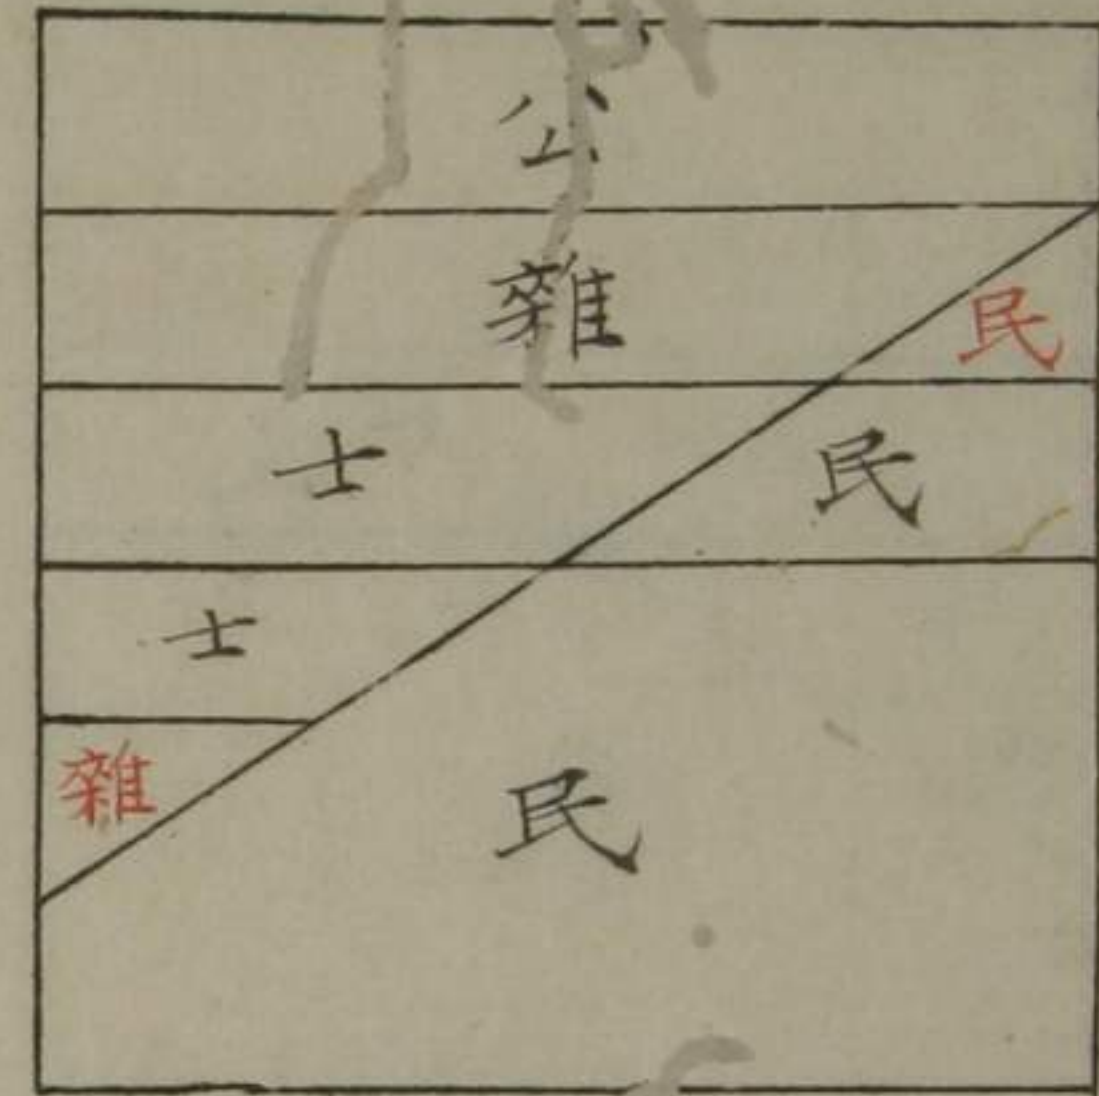 公
雜
民
士
民
士
雜
民